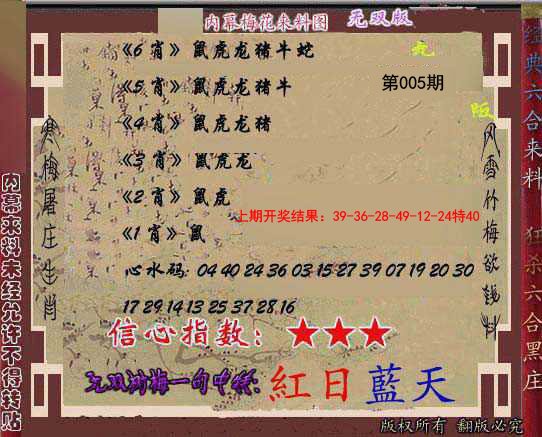 内幕梅花来料图 无双版
《6 肖》 鼠虎龙猪牛蛇
《5 肖》 鼠虎龙猪牛
第005期
《4 肖》 鼠虎龙猪
《3 肖》 鼠虎龙
《2 肖》 鼠虎
上期开奖结果：39-36-28-49-12-24特40
《1 肖》 鼠
心水码: 04 40 24 36 03 15 27 39 07 19 20 30
17 29 14 13 25 37 28 16
信心指数：★★★
紅日藍天
版权所有 翻版必究
寒梅屠庄生肖
风雪竹梅欲钱料
内幕来料未经允许不得转贴
经典六合来料 狂杀六合黑庄